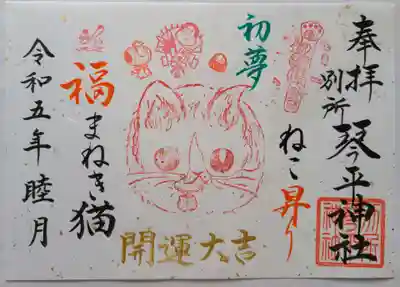 奉拝
別所
琴平神社
初夢
ねこ昇り
福まねき猫
令和五年睦月
開運大吉